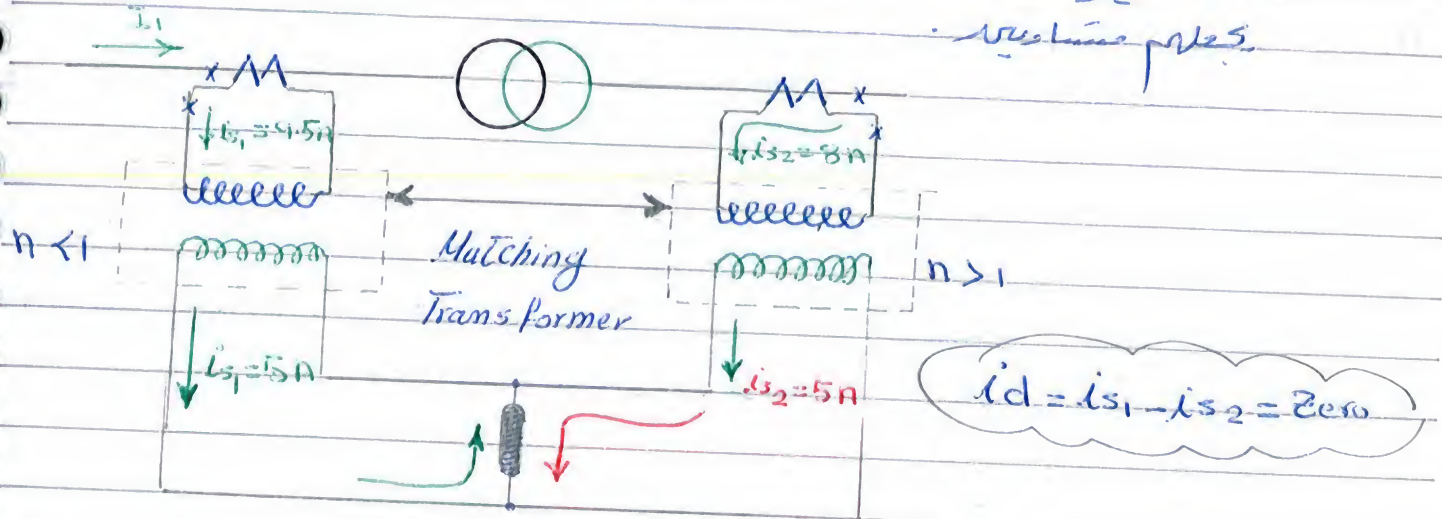 يجعلهم متساويين .
I1
x x
x x
is1 = 4.5A
is2 = 8A
n < 1
Matching
Transformer
n > 1
is1 = 5A
is2 = 5A
id = is1 - is2 = Zero